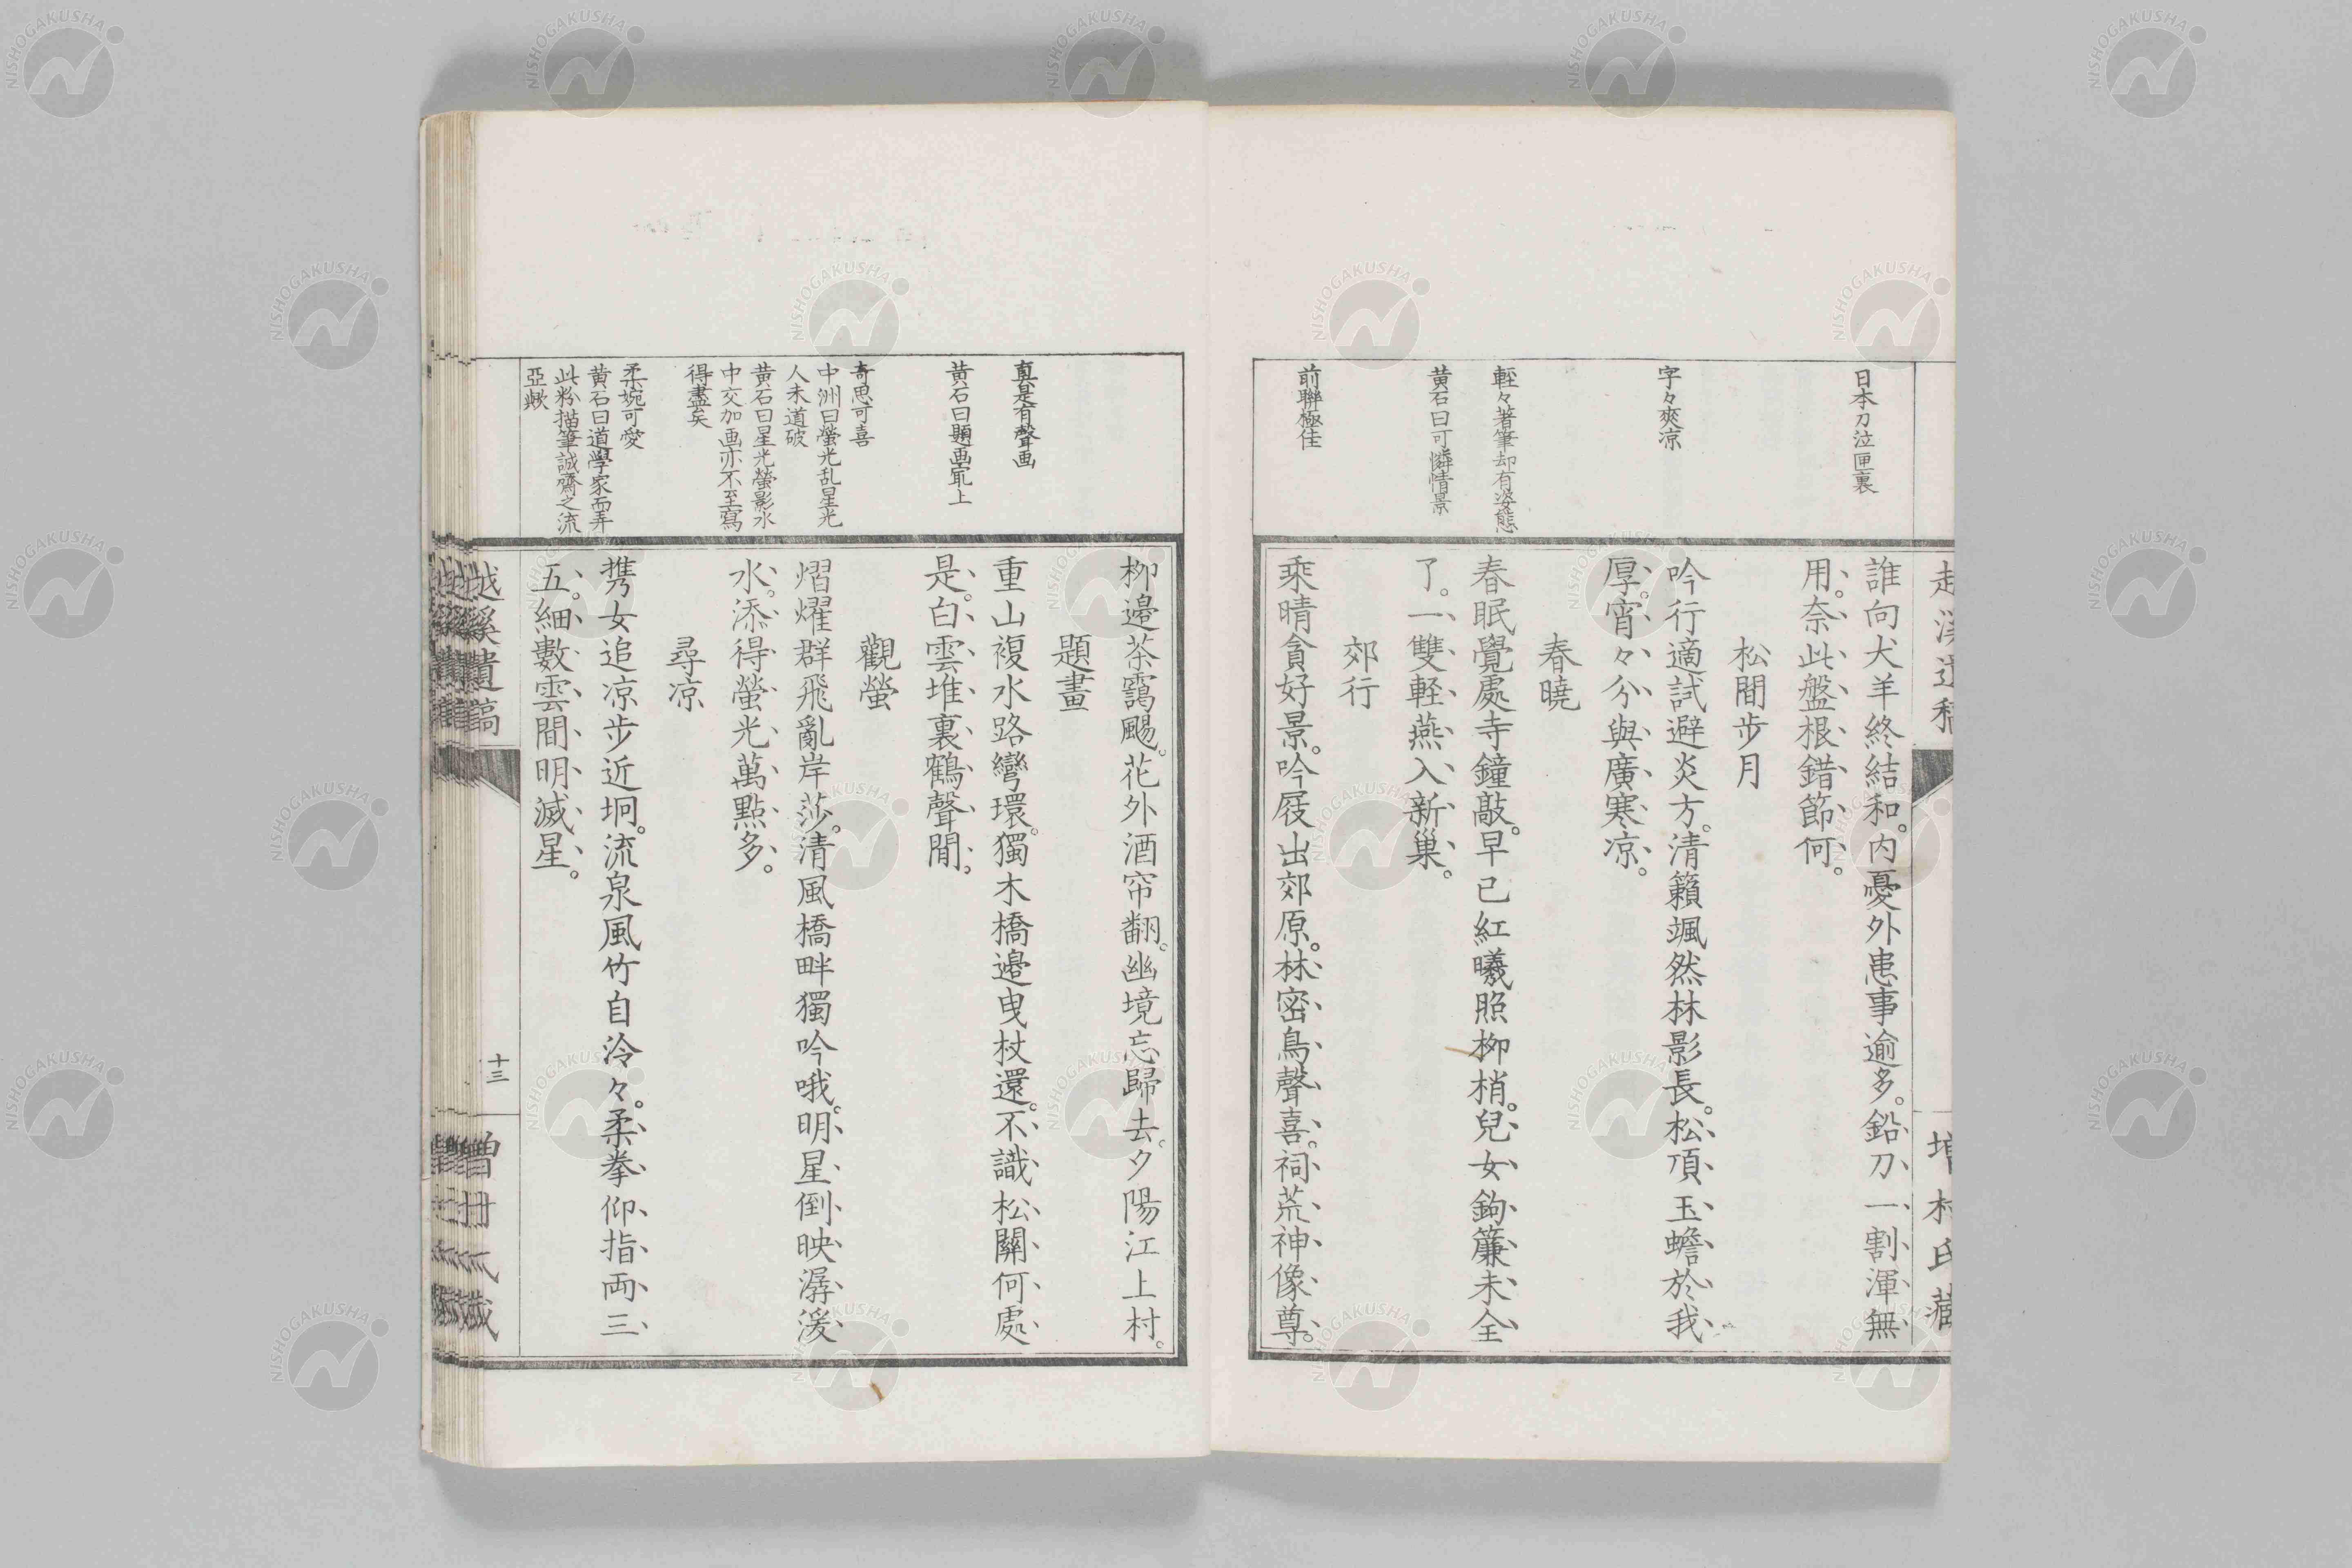 日本刀泣匣裏
字々爽凉
輊々著筆却有姿態
黄石曰可憐情景
前聯極佳
誰向犬羊終結和。内憂外患事逾多。鉛刀一割渾無
用。奈此盤根錯節何。
松間步月
吟行適試避炎方。清籟颯然林影長。松頂玉蟾於我
厚。宵々分與廣寒凉。
春曉
春眠覺處寺鐘敲。早已紅曦照柳梢。兒女鉤簾未全
了。一雙軽燕入新巢。
郊行
乘晴貪好景。吟屐出郊原。林密鳥聲喜。祠荒神像尊。
増村氏藏
真是有聲画
黄石曰題画冣上
奇思可喜
中洲曰螢光乱星光
人未道破
黄石曰星光螢影水
中交加画亦不至寫
得盡矣
柔婉可愛
黄石曰道學家而弄
此粉描筆誠齋之流
亞歟
柳邊茶靄颺。花外酒帘翻。幽境忘歸去。夕陽江上村。
題畫
重山複水路彎環。獨木橋邊曳杖還。不識松關何處
是。白雲堆裏鶴聲閒。
觀螢
熠燿群飛亂岸莎。清風橋畔獨吟哦。明星倒映潺湲
水。添得螢光萬點多。
尋凉
携女追凉步近坰。流泉風竹自泠々。柔拳仰指両三
五。細數雲間明滅星。
越溪遺稿
十三